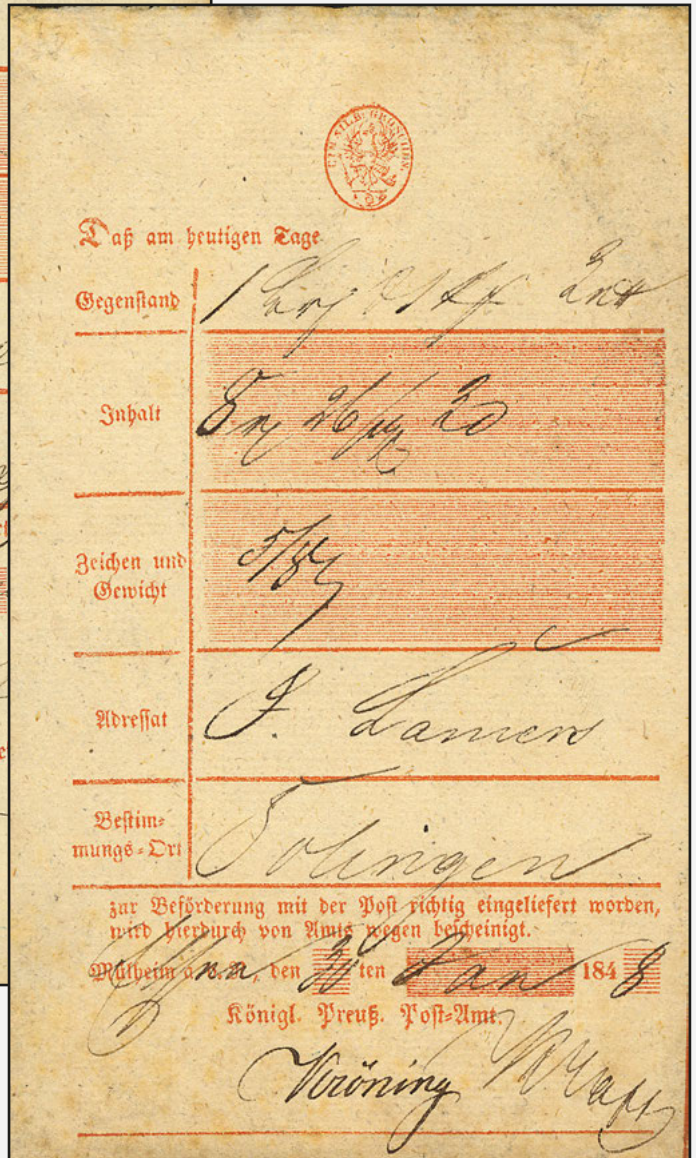 EIN SILB. GROSCHEN.
Daß am heutigen Tage
Gegenstand 1
Inhalt 26 20
Zeichen und
Gewicht 5/8
Adressat J. Lamers
Bestim-
mungs-Ort Solingen
zur Beförderung mit der Post richtig eingeliefert worden,
wird hierdurch von Amts wegen bescheinigt.
Mülheim a. d. R., den 30 ten Jan 1848
Königl. Preuß. Post-Amt.
Kröning